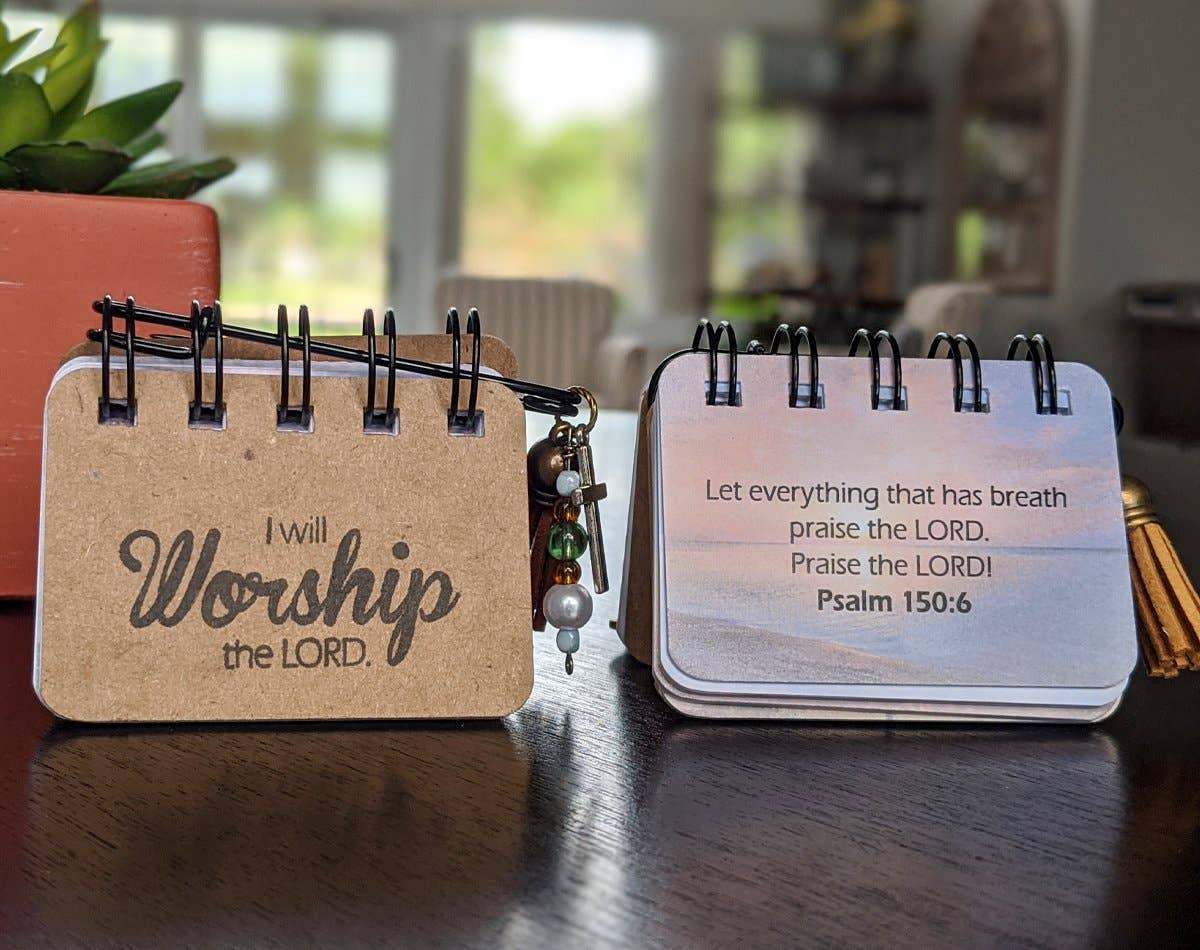 I will
Worship
the LORD.
Let everything that has breath
praise the LORD.
Praise the LORD!
Psalm 150:6